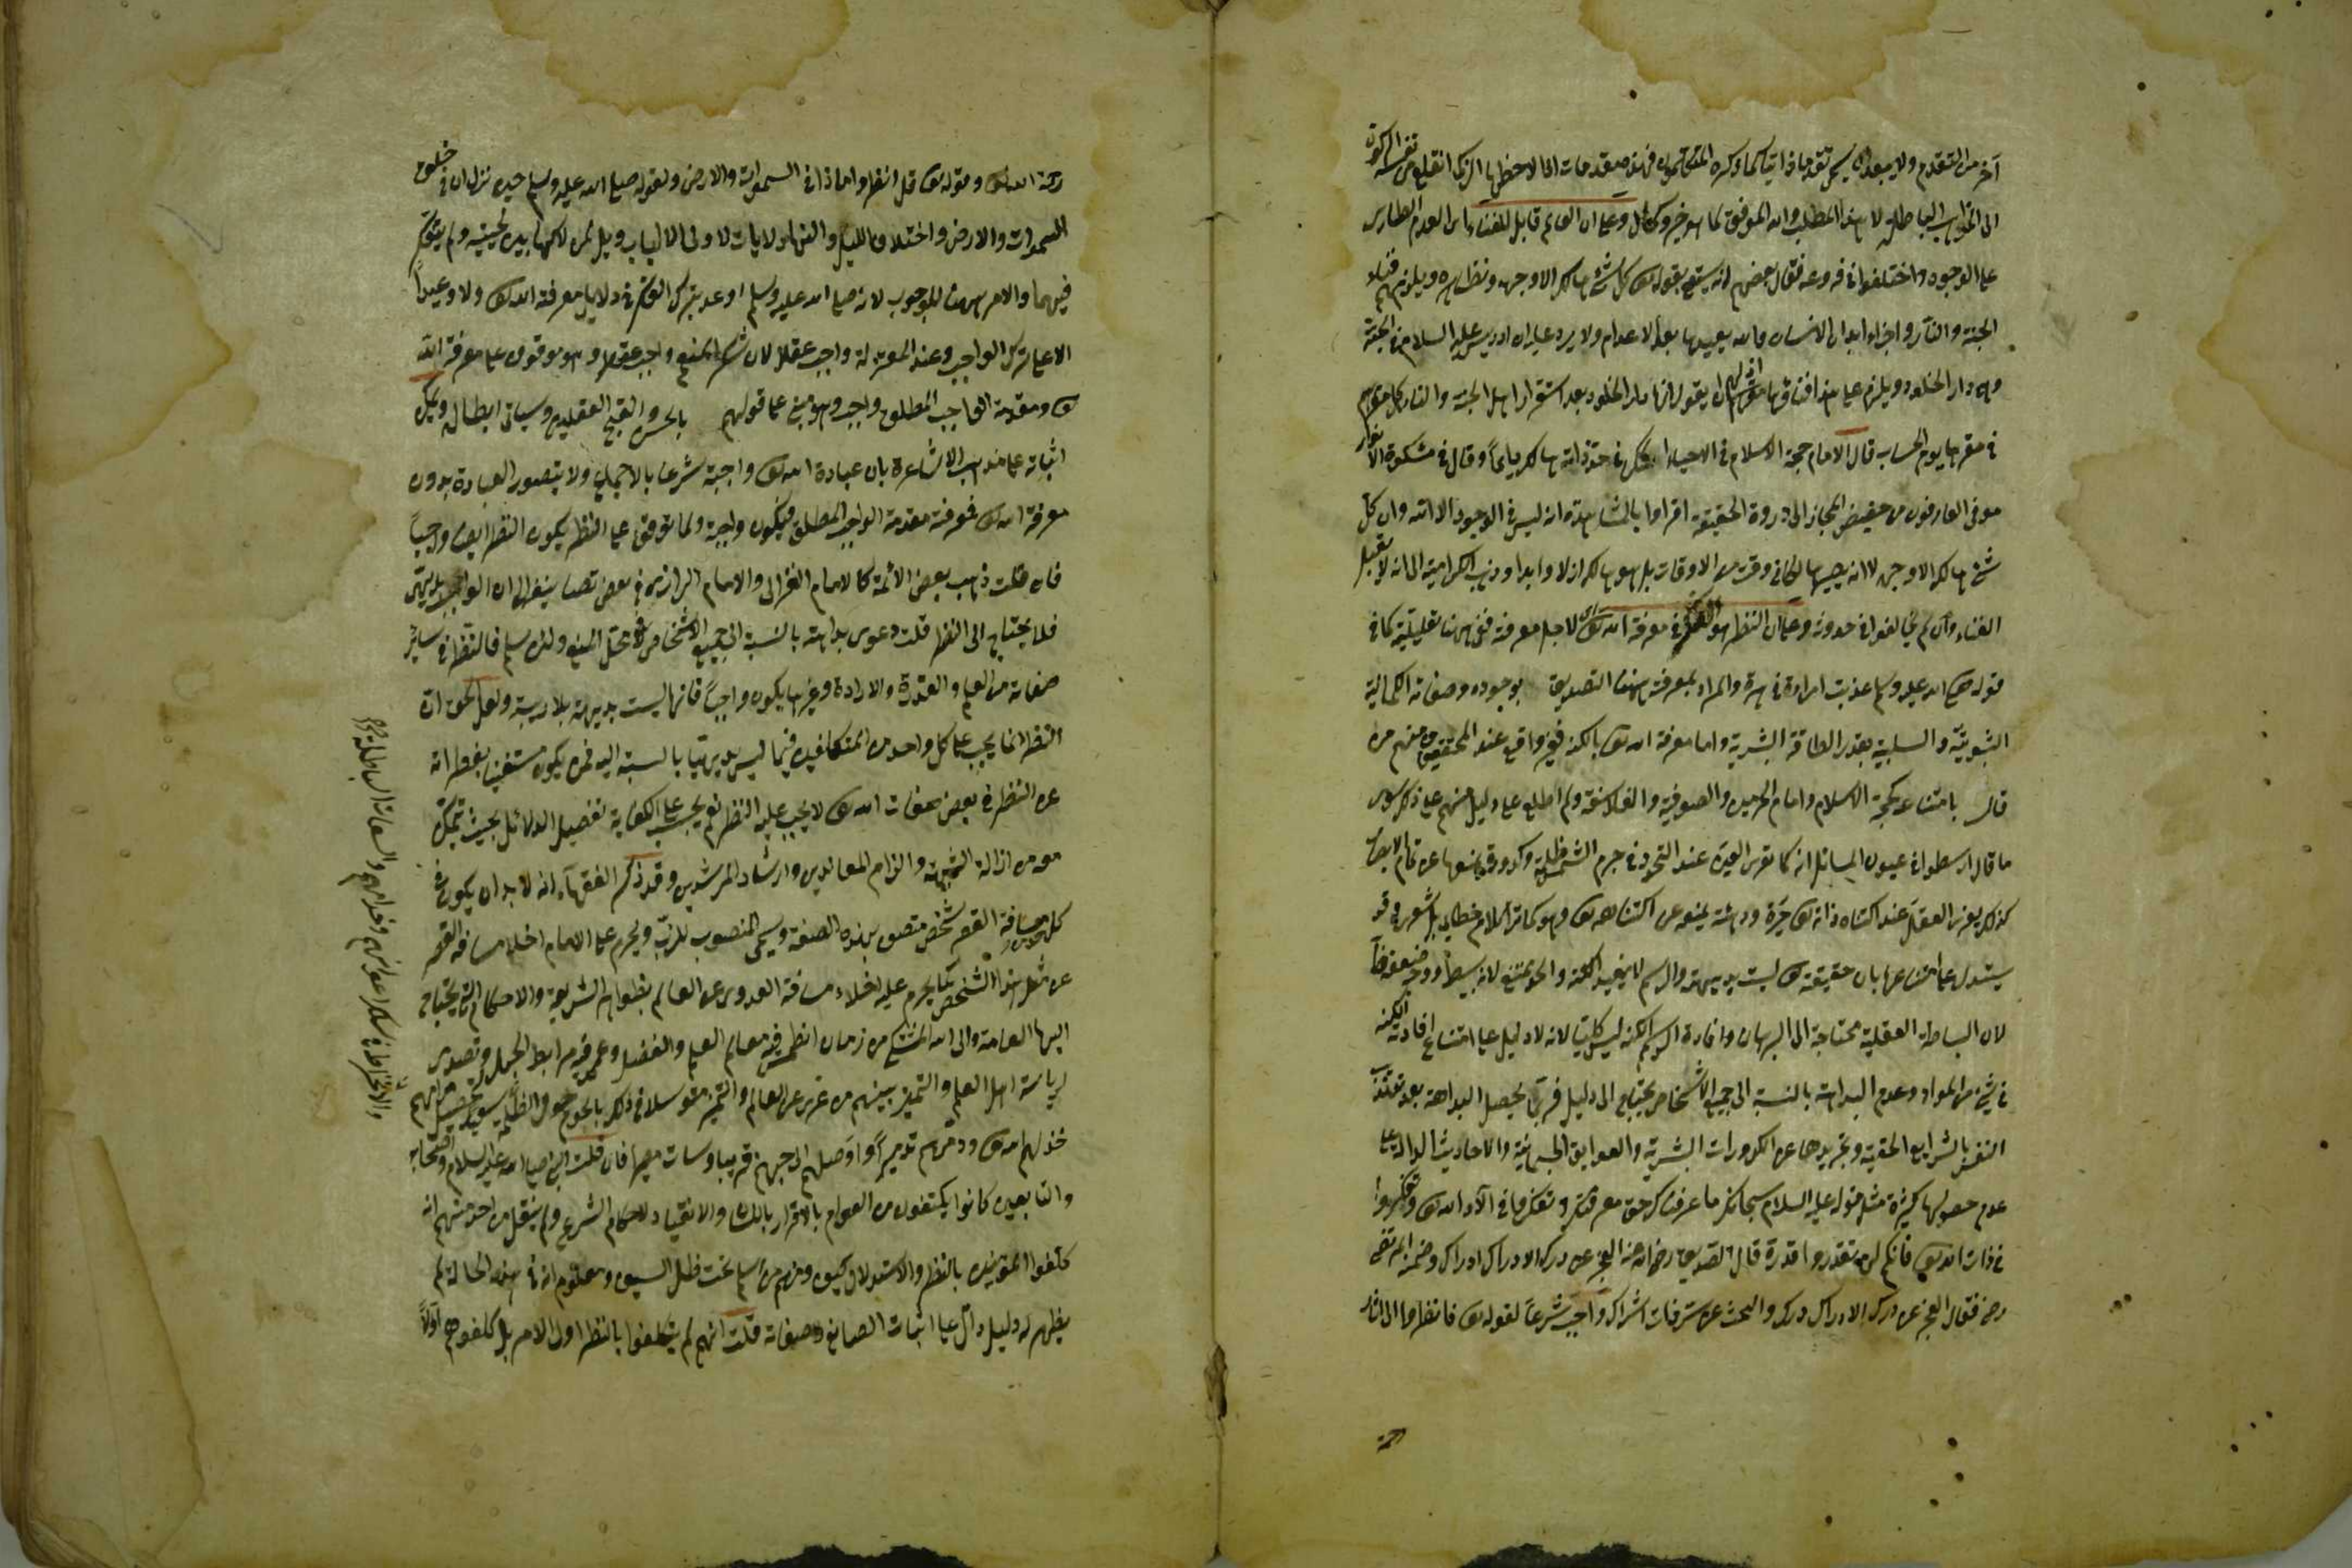 آخر من التقدم ولا يبعد ان يسمى تقدما ذاتيا كما ذكره المتكلمون فهذه مقدمات اذا لاحظها الزكى انقلع من نفسه الركون
الى المذاهب الباطلة لا هذا المطلب والله الموفق لما هو خير وكمال وعلى ان العالم قابل للفناء اى العدم الطارى
على الوجود واختلفوا فى فروعه فقال بعضهم انه سيقع بقوله تعالى كل شئ هالك الا وجهه ونظايره ويلزمهم فناء
الجنة والنار واجزاء ابدان الانسان والله يعيدها بعد الاعدام ولا يرد عليه ان ادريس عليه السلام فى الجنة
وهى دار الخلود ويلزم على هذا فناؤها مع ان لهم ان يقولوا انها دار الخلود بعد استقرار اهل الجنة والنار كل منهم
فى مقرها يوم الحساب قال الامام حجة الاسلام فى الاحياء الممكن فى حد ذاته هالك دائما وقال فى مشكوة الانوار
عرف العارفون من حضيض المجاز الى ذروة الحقيقة فراوا بالمشاهدة ان ليس فى الوجود الا الله وان كل
شئ هالك الا وجهه لا انه يصير هالكا فى وقت من الاوقات بل هو هالك ازلا وابدا وذهب الكرامية الى انه لا يقبل
الفناء وان لم يخالفوا فى حدوثه وعلى ان النظر هو الفكر فى معرفة الله تعالى اى لاجل معرفته ففى ههنا تعليلية كما فى
قوله صلى الله عليه وسلم عذبت امراة فى هرة والمراد بمعرفته ههنا التصديق بوجوده وصفاته الكمالية
الثبوتية والسلبية بقدر الطاقة البشرية واما معرفة الله تعالى بالكنه فغير واقع عند المحققين ومنهم من
قال بامتناعه كحجة الاسلام وامام الحرمين والصوفية والفلاسفة ولم اطلع على دليل منهم على ذلك سوى
ما قال ارسطو فى عيون المسائل انه كما تعترى العين عند التحديق فى جرم الشمس ظلمة وكدورة تمنعها عن تمام الابصار
كذلك يعترى العقل عند اكتناه ذاته تعالى حيرة ودهشة تمنعه عن اكتناهه تعالى وهو كما ترى كلام خطابى بل شعرى وقد
يستدل على امتناعها بان حقيقته تعالى ليست بديهية والرسم لا يفيد الكنه والحد ممتنع لانه بسيط ووجه ضعفه ظ
لان البساطة العقلية محتاجة الى البرهان وافادة الرسم الكنه ليس كليا لانه لا دليل على امتناع افادته الكنه
فى شئ من المواد وعدم البداهة بالنسبة الى جميع الاشخاص يحتاج الى دليل فربما يحصل البداهة بعد تهذيب
النفس بالشرايع الحقية وتجريدها عن الكدورات البشرية والعوايق الجسمانية والاحاديث الدالة على
عدم حصولها كثيرة مثل قوله عليه السلام سبحانك ما عرفناك حق معرفتك وتفكروا فى آلاء الله تعالى ولا تفكروا
فى ذات الله تعالى فانكم لن تقدروا قدره قال الصديق رضى الله عنه العجز عن درك الادراك ادراك وضمنه المرتضى
رضه فقال العجز عن درك الادراك درك والبحث عن سر ذات اشراك واجب شرعا لقوله تعالى فانظروا الى اثار
رحمة
رحمة الله تعالى وقوله تعالى قل انظروا ماذا فى السموات والارض ولقوله صلى الله عليه وسلم حين نزل ان فى خلق
السموات والارض واختلاف الليل والنهار لايات لاولى الالباب ويل لمن لاكها بين لحييه ولم يتفكر
فيها والامر ههنا للوجوب لانه صلى الله عليه وسلم اوعد بترك الفكر فى دلايل معرفة الله تعالى ولا وعيد
الا على ترك الواجب وعند المعتزلة واجب عقلا لان شكر المنعم واجب عقلا وهو موقوف على معرفة الله
تعالى ومقدمة الواجب المطلق واجب وهو مبنى على قولهم بالحسن والقبح العقليين وسياتى ابطاله ويمكن
اثباته على مذهب الاشاعرة بان عبادة الله تعالى واجبة شرعا بالاجماع ولا يتصور العبادة بدون
معرفة الله تعالى فمعرفته مقدمة الواجب المطلق فيكون واجبة ولما توقف على النظر يكون النظر ايضا واجبا
فان قلت ذهب بعض الائمة كالامام الغزالى والامام الرازى فى بعض تصانيفهما الى ان الواجب بديهى
فلا يحتاج الى النظر قلت دعوى بداهته بالنسبة الى جميع الاشخاص فى محل المنع ولئن سلم فالنظر فى ساير
صفاته من العلم والقدرة والارادة وغيرها يكون واجبا فانها ليست بديهية بلا ريبة ولعل الحق ان
النظر انما يجب على كل واحد من المتكلفين فيما ليس بديهيا بالنسبة اليه فمن يكون مستغنيا بفطرته
عن النظر فى بعض صفات الله تعالى لا يجب عليه النظر نعم يجب على الكفاية تفصيل الدلائل بحيث يتمكن
معه من ازالة الشبهة والزام المعاندين وارشاد المرشدين وقد ذكر الفقهاء انه لا بد ان يكون فى
كل مسافة القصر شخص متصف بهذه الصفة ويسمى المنصوب للذب ويحرم على الامام اخلاء مسافة القصر
عن مثل هذا الشخص كما يحرم عليه اخلاء مسافة العدوى عن العالم بظواهر الشريعة والاحكام التى يحتاج
اليها العامة والى الله المشتكى من زمان انطمس فيه معالم العلم والفضل وعمر فيه مرابط الجهل وتصدى
لرياسة اهل العلم والتميز بينهم من عرى عن العلم والتميز متوسلا فى ذلك بالحوم حول الظلمة سيد لتحصيل مرامهم
خذلهم الله تعالى ودمرهم تدميرا واوصلهم الى جهنم قريبا وساءت مصيرا فان قلت النبى صلى الله عليه السلام واصحابه
والتابعين كانوا يكتفون من العوام بالاقرار باللسان والانقياد لاحكام الشرع ولم ينقل من احد منهم انه
كلفوا المؤمنين بالنظر والاستدلال كيف ومنهم من اسلم تحت ظل السيف ومعلوم انه فى هذه الحالة لم
يظهر له دليل دال على اثبات الصانع وصفاته قلت انهم لم يكلفوا بالنظر اول الامر بل كلفوهم اولا